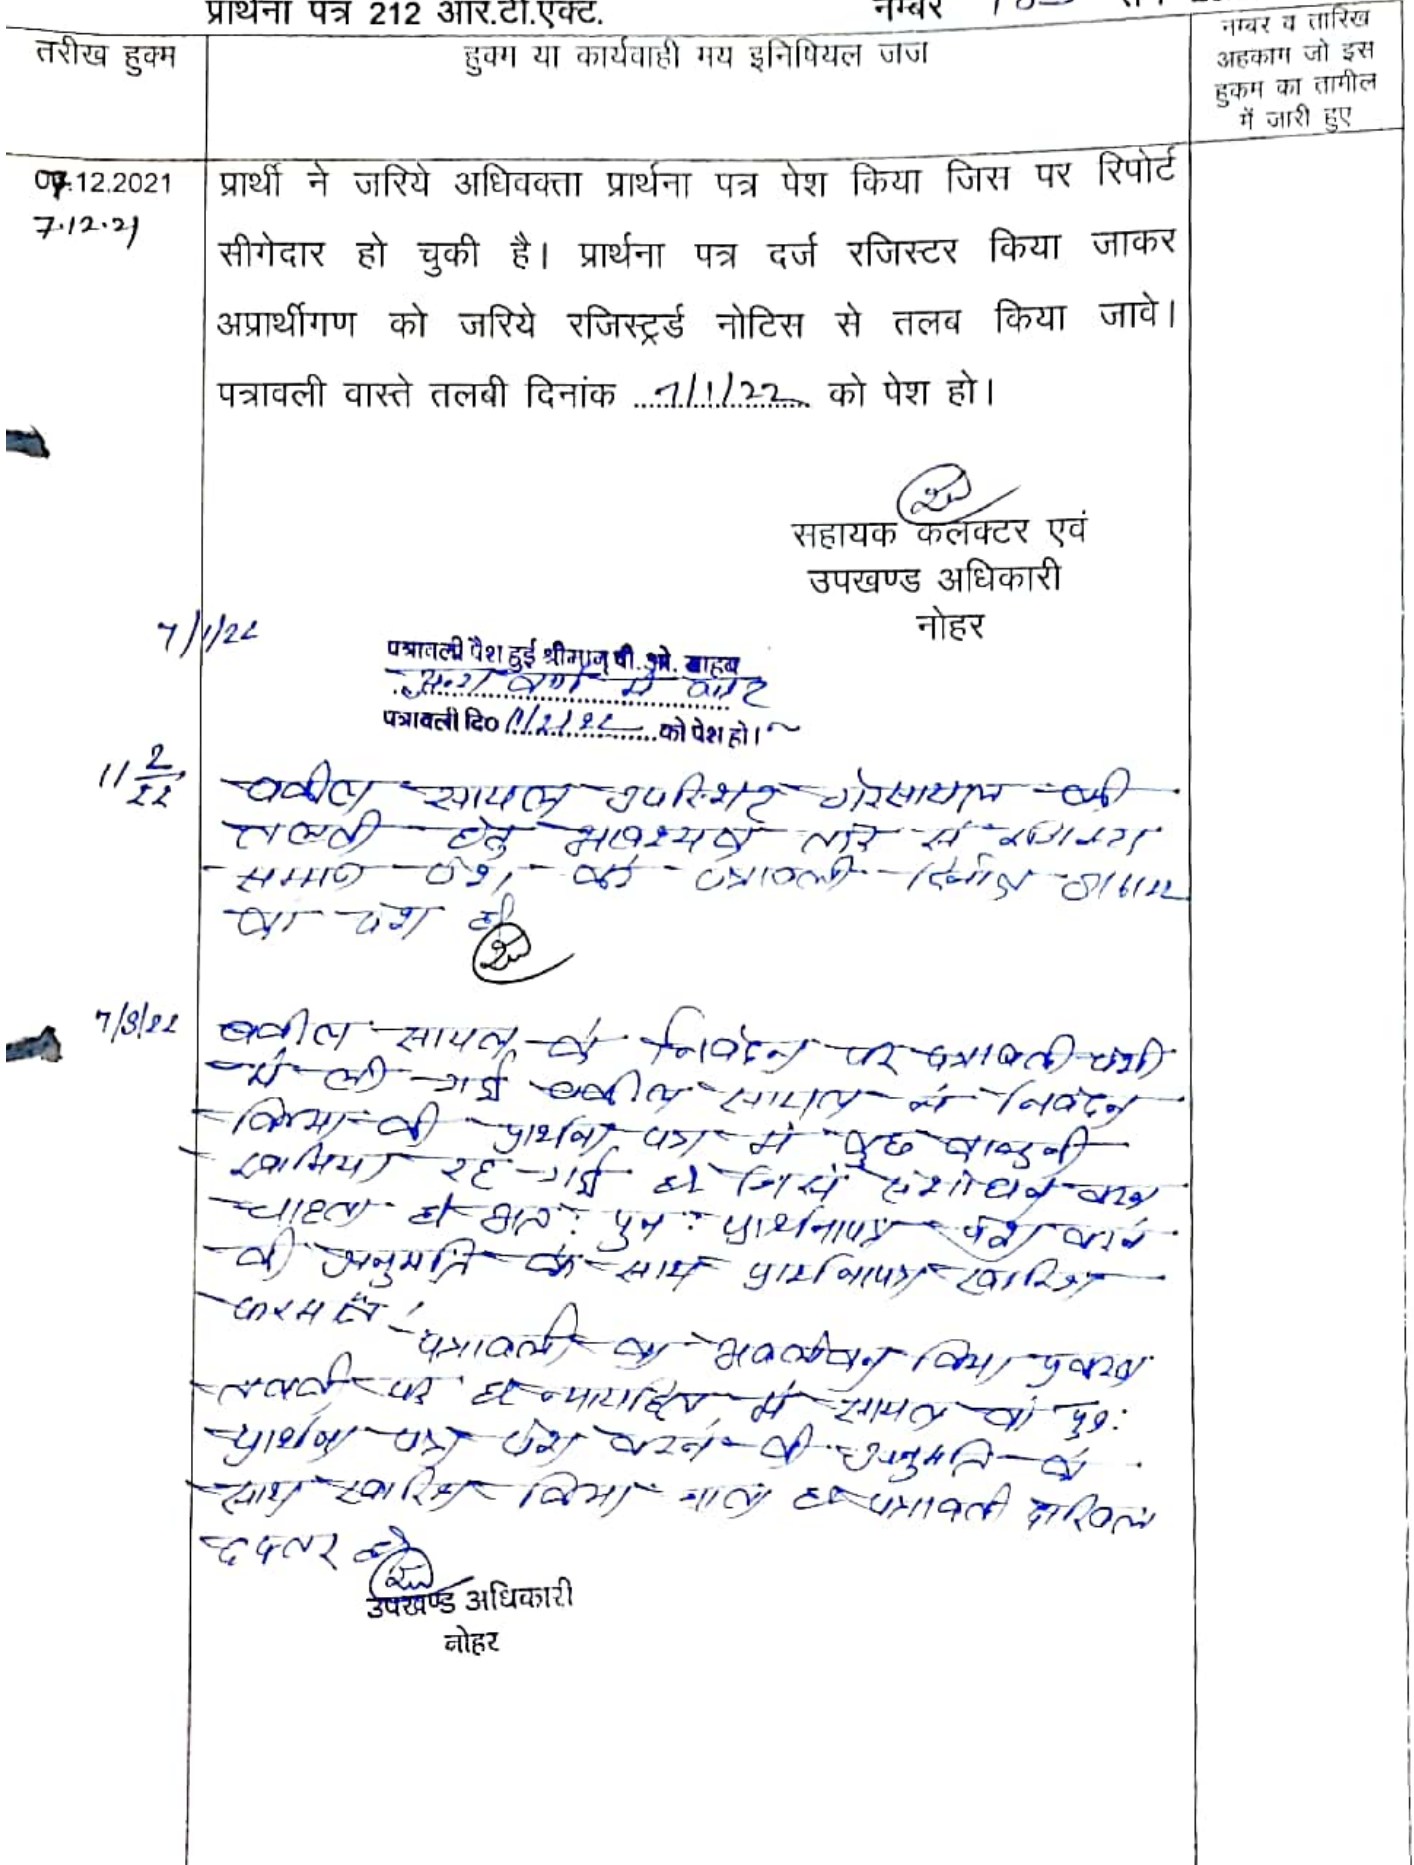 प्रार्थना पत्र 212 आर.टी.एक्ट. नम्बर
तरीख हुक्म
हुक्म या कार्यवाही मय इनिपियल जज
नम्बर व तारिख
अहकाम जो इस
हुकम का तामील
में जारी हुए
07.12.2021
7.12.21
प्रार्थी ने जरिये अधिवक्ता प्रार्थना पत्र पेश किया जिस पर रिपोर्ट
सीगेदार हो चुकी है। प्रार्थना पत्र दर्ज रजिस्टर किया जाकर
अप्रार्थीगण को जरिये रजिस्ट्रर्ड नोटिस से तलब किया जावे।
पत्रावली वास्ते तलबी दिनांक 7/1/22 को पेश हो।
सहायक कलक्टर एवं
उपखण्ड अधिकारी
नोहर
7/1/22
पत्रावली पैश हुई श्रीमान् पी. ओ. साहब
पत्रावली दि० 11/2/22 को पेश हो।
11 2/22
वकील सायल उपस्थित गैरसायल की
तलबी हेतु आवश्यक तौर से
पत्रावली दिनांक
का पेश हो
7/3/22
वकील सायल के निवेदन पर पत्रावली पेशी
में ली गई वकील सायल ने निवेदन
किया की प्रार्थना पत्र में कुछ कानुनी
खामिया रह गई है जिसे संशोधन करना
चाहता है अतः पुनः प्रार्थनापत्र पेश करने
की अनुमति के साथ प्रार्थनापत्र खारिज
फरमावें।
पत्रावली का अवलोकन किया प्रकरण
तलबी पर है न्यायहित में सायल को पुनः
प्रार्थना पत्र पेश करने की अनुमति के
साथ खारिज किया जाता है पत्रावली दाखिल
दफ्तर हो
उपखण्ड अधिकारी
नोहर